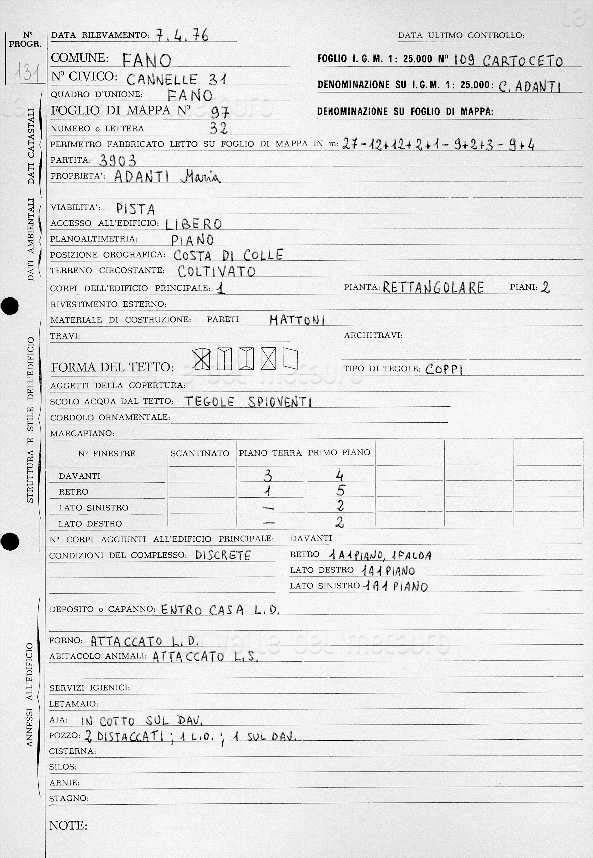 N° PROGR.
131
DATA RILEVAMENTO: 7.4.76
DATA ULTIMO CONTROLLO:
COMUNE: FANO
FOGLIO I.G.M. 1: 25.000 N° 109 CARTOCETO
N° CIVICO: CANNELLE 31
DENOMINAZIONE SU I.G.M. 1: 25.000: C. ADANTI
QUADRO D'UNIONE: FANO
FOGLIO DI MAPPA N° 97
DENOMINAZIONE SU FOGLIO DI MAPPA:
NUMERO o LETTERA 32
PERIMETRO FABBRICATO LETTO SU FOGLIO DI MAPPA IN m: 27-12+12+2+1-9+2+3-9+4
PARTITA: 3903
PROPRIETA': ADANTI Maria
DATI AMBIENTALI DATI CATASTALI
VIABILITA': PISTA
ACCESSO ALL'EDIFICIO: LIBERO
PLANOALTIMETRIA: PIANO
POSIZIONE OROGRAFICA: COSTA DI COLLE
TERRENO CIRCOSTANTE: COLTIVATO
CORPI DELL'EDIFICIO PRINCIPALE: 1
PIANTA: RETTANGOLARE PIANI: 2
RIVESTIMENTO ESTERNO:
MATERIALE DI COSTRUZIONE: PARETI MATTONI
TRAVI:
ARCHITRAVI:
FORMA DEL TETTO:
TIPO DI TEGOLE: COPPI
AGGETTI DELLA COPERTURA:
SCOLO ACQUA DAL TETTO: TEGOLE SPIOVENTI
CORDOLO ORNAMENTALE:
MARCAPIANO:
STRUTTURA E STILE DELL'EDIFICIO
N° FINESTRE SCANTINATO PIANO TERRA PRIMO PIANO
DAVANTI 3 4
RETRO 1 5
LATO SINISTRO – 2
LATO DESTRO – 2
N° CORPI AGGIUNTI ALL'EDIFICIO PRINCIPALE: DAVANTI
CONDIZIONI DEL COMPLESSO: DISCRETE
RETRO 1 A 1 PIANO, 1 FALDA
LATO DESTRO 1 A 1 PIANO
LATO SINISTRO 1 A 1 PIANO
DEPOSITO o CAPANNO: ENTRO CASA L.D.
FORNO: ATTACCATO L.D.
ABITACOLO ANIMALI: ATTACCATO L.S.
ANNESSI ALL'EDIFICIO
SERVIZI IGIENICI:
LETAMAIO:
AIA: IN COTTO SUL DAV.
POZZO: 2 DISTACCATI; 1 L.D.; 1 SUL DAV.
CISTERNA:
SILOS:
ARNIE:
STAGNO:
NOTE: